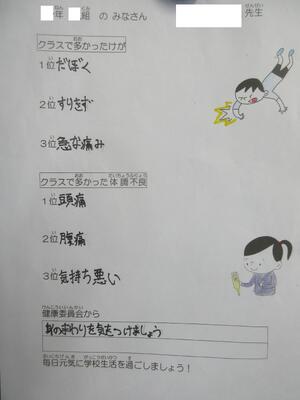 年 組 の みなさん 先生
クラスで多かったけが
1位だぼく
2位すりきず
3位急な痛み
クラスで多かった体調不良
1位頭痛
2位腹痛
3位気持ち悪い
健康委員会から
身のまわりを気をつけましょう
毎日元気に学校生活を過ごしましょう!